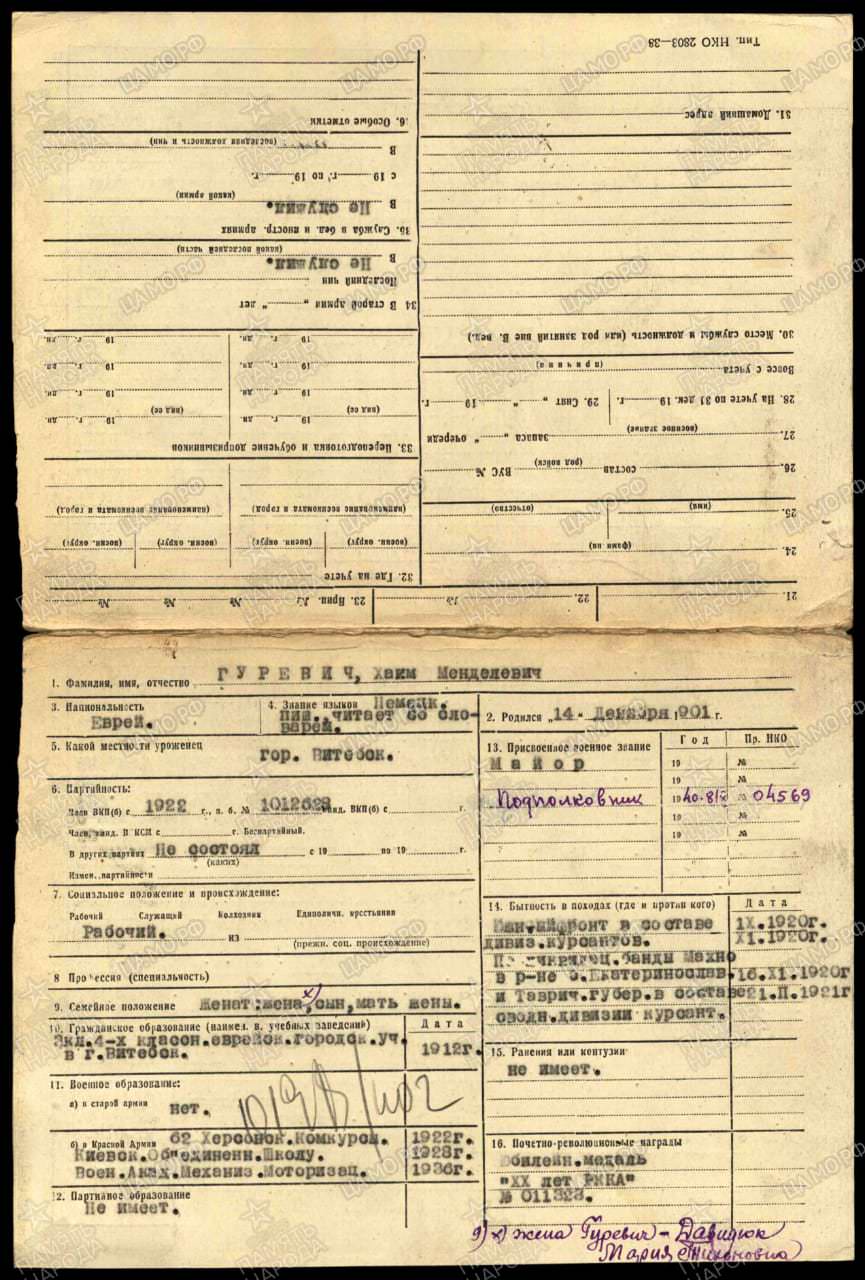 Тип. НКО 2803—38
31. Домашний адрес
30. Место службы и должность (или род занятий вне В. вед.).
Вовсе с учета
(причина)
28. На учете по 31 дек. 19 г. 29. Снят „ “ 19 г.
27. запаса „ “ очереди
(военное звание)
26. состав ВУС №
(род войск)
25.
(имя) (отчество)
24.
(фамилия)
21. 22. № 23. Прип. № № № №
6. Особые отметки
(последняя должность и чин)
В
с 19 г. по 19 г.
(какой армии)
В Не служил.
35. Служба в бел. и иностр. армиях
(какой последней части)
В Не служил.
Последний чин
34 В старой армии „ “ лет
19 г. дн. 19 г. дн.
19 г. дн. 19 г. дн.
19 г. дн. 19 г. дн.
(вид ее) (вид ее)
19 г. дн. 19 г. дн.
33. Переподготовка и обучение допризывников
(наименование военкомата и город) (наименование военкомата и город)
(военн. округ) (военн. округ) (военн. округ) (военн. округ)
32. Где на учете
1. Фамилия, имя, отчество ГУРЕВИЧ, Хаим Менделевич
3. Национальность
Еврей.
4. Знание языков Немецк.
пиш., читает со сло-
варем.
2. Родился „14“ Декабря 1901 г.
5. Какой местности уроженец
гор. Витебск.
6. Партийность:
Член ВКП(б) с 1922 г., п. б. № 1012628 канд. ВКП(б) с г.
Член, канд. В КСМ с г. Беспартийный.
В других партиях Не состоял с 19 по 19 г.
(каких)
Измен. партийности
7. Социальное положение и происхождение:
Рабочий Служащий Колхозник Единоличн. крестьянин
Рабочий. из
(прежн. соц. происхождение)
8 Профессия (специальность)
9. Семейное положение Женат: жена х), сын, мать жены.
10. Гражданское образование (наимен. в. учебных заведений) Дата
3кл. 4-х классн. еврейск. городск. уч.
в г. Витебск. 1912г.
11. Военное образование:
а) в старой армии нет.
б) в Красной Армии 62 Херсонск. Комкурсы. 1922г.
Киевск. Объединенн. Школу. 1928г.
Воен. Акад. Механиз. Моторизац. 1936г.
12. Партийное образование
Не имеет.
13. Присвоенное военное звание Год Пр. НКО
Майор 19 №
19 №
Подполковник 1940 № 04569
19 №
14. Бытность в походах (где и против кого) Дата
фронт в составе 1Х.1920г.
дивиз. курсантов. Х1.1920г.
банды Махно
в р-не Екатеринослав. 16.Х1.1920г
и Таврич. губер. в составе 21.П.1921г
сводн. дивизии курсант.
15. Ранения или контузии
не имеет.
16. Почетно-революционные награды
Юбилейн. медаль
"ХХ лет РККА"
№ 011323.
9) х) жена Гуревич - Давидюк
Мария Тихоновна